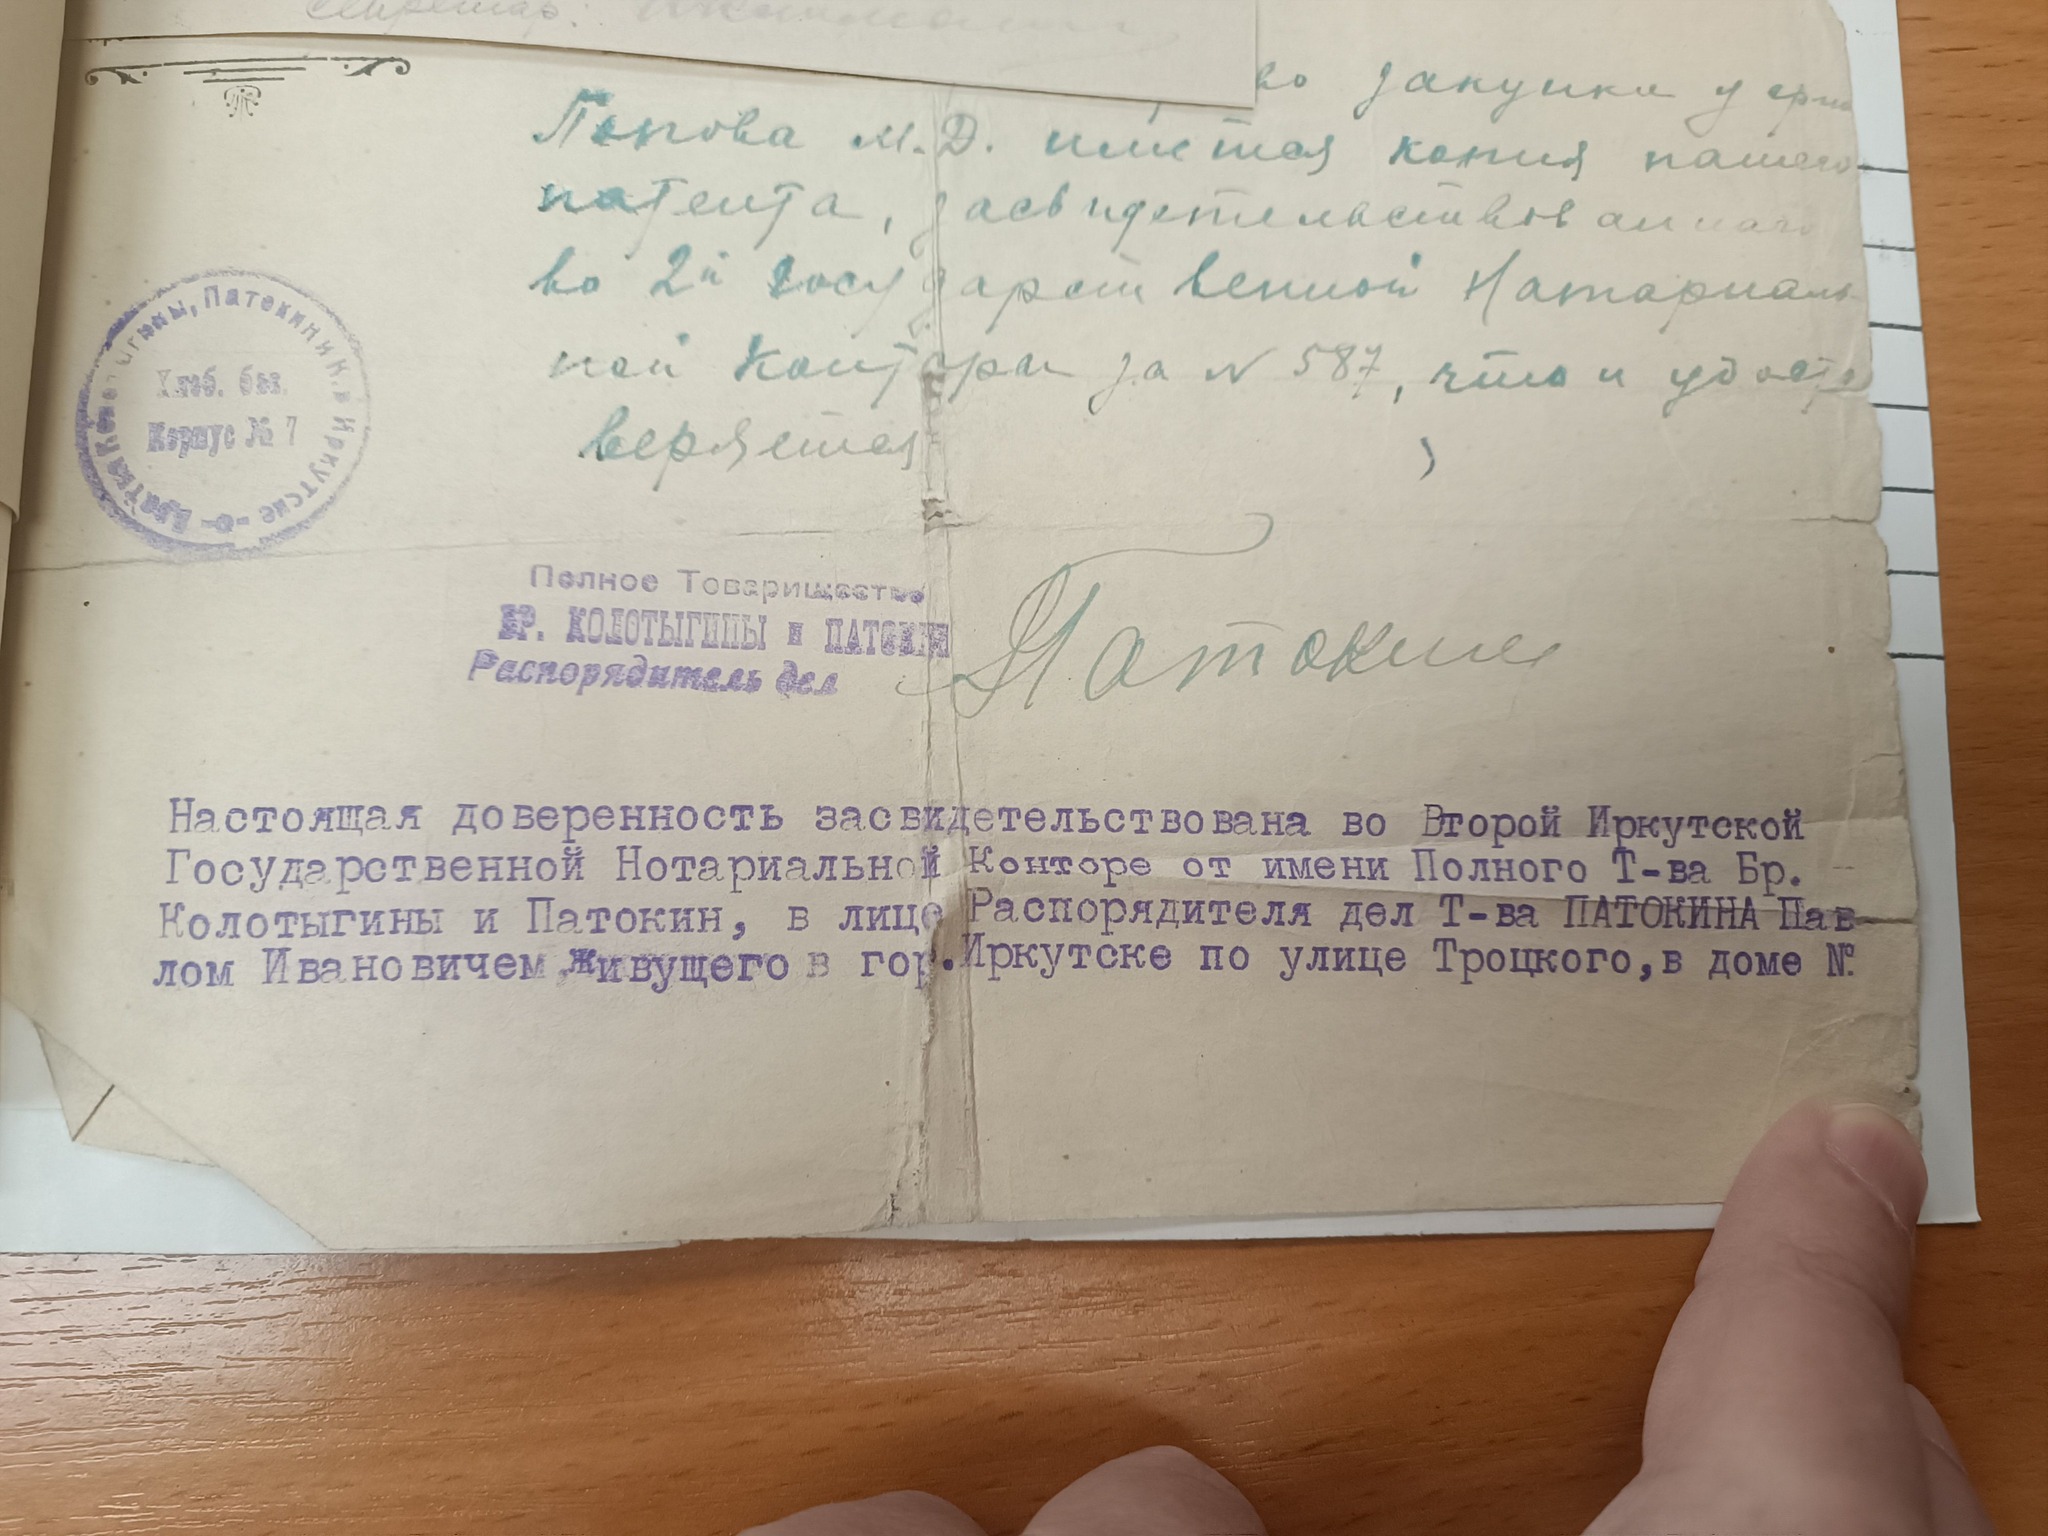 Секретарь:
во закупки у гр-на
Попова М.Д. имеется копия нашего
патента, засвидетельствованного
во 2й государственной Нотариаль-
ной Конторы за № 587, что и удосто
веряется
Братья Колотыгины, Патокин и К. в Иркутске
Хлеб. баз.
Корпус № 7
Полное Товарищество
БР. КОЛОТЫГИНЫ и ПАТОКИН
Распорядитель дел
Патокин
Настоящая доверенность засвидетельствована во Второй Иркутской
Государственной Нотариальной Конторе от имени Полного Т-ва Бр.
Колотыгины и Патокин, в лице Распорядителя дел Т-ва ПАТОКИНА Пав-
лом Ивановичем живущего в гор.Иркутске по улице Троцкого,в доме №